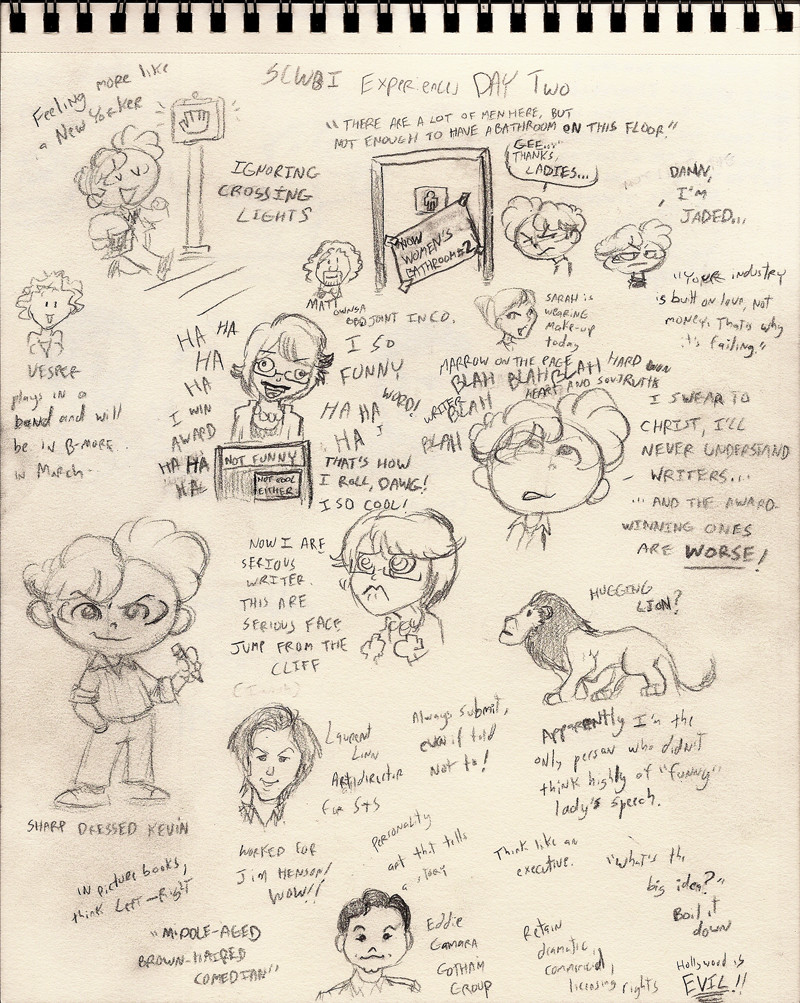 SCWBI Experiences DAY Two
Feeling more like
a New Yorker
IGNORING
CROSSING
LIGHTS
"THERE ARE A LOT OF MEN HERE, BUT
NOT ENOUGH TO HAVE A BATHROOM ON THIS FLOOR."
GEE...
THANKS,
LADIES...
NOW
WOMEN'S
BATHROOM #2
DAMN,
I'M
JADED...
MATT
OWNS A
BBQ JOINT IN CO.
SARAH is
WEARING
Make-up
today
"Your industry
is built on love, not
money. That's why
it's failing."
VESPER
plays in a
band and will
be in B-MORE
in March
HA HA
HA
HA
I WIN
AWARD
HA HA
HA
I SO
FUNNY
HA HA
HA
WORD!
THAT'S HOW
I ROLL, DAWG!
I SO COOL!
NOT FUNNY
NOT COOL
EITHER
MARROW ON THE PAGE
HARD WON
BLAH BLAH BLAH
HEART AND SOUL
TRUTH
WRITER
BLAH
BLAH
I SWEAR TO
CHRIST, I'LL
NEVER UNDERSTAND
WRITERS...
...AND THE AWARD-
WINNING ONES
ARE WORSE!
NOW I ARE
SERIOUS
WRITER.
THIS ARE
SERIOUS FACE
JUMP FROM THE
CLIFF
HUGGING
LION?
SHARP DRESSED KEVIN
Laurent
Linn
Art director
For S+S
WORKED FOR
JIM HENSON!
WOW!!
Always submit,
even if told
not to!
Apparently I'm the
only person who didn't
think highly of "funny"
lady's speech.
IN picture books,
think Left-Right
Personality
art that tells
a story
Think like an
executive.
"What's the
big idea?"
Boil it
down
"MIDDLE-AGED
BROWN-HAIRED
COMEDIAN"
Eddie
Gamarra
GOTHAM
GROUP
Retain
dramatic,
commercial,
licensing rights
Hollywood is
EVIL!!